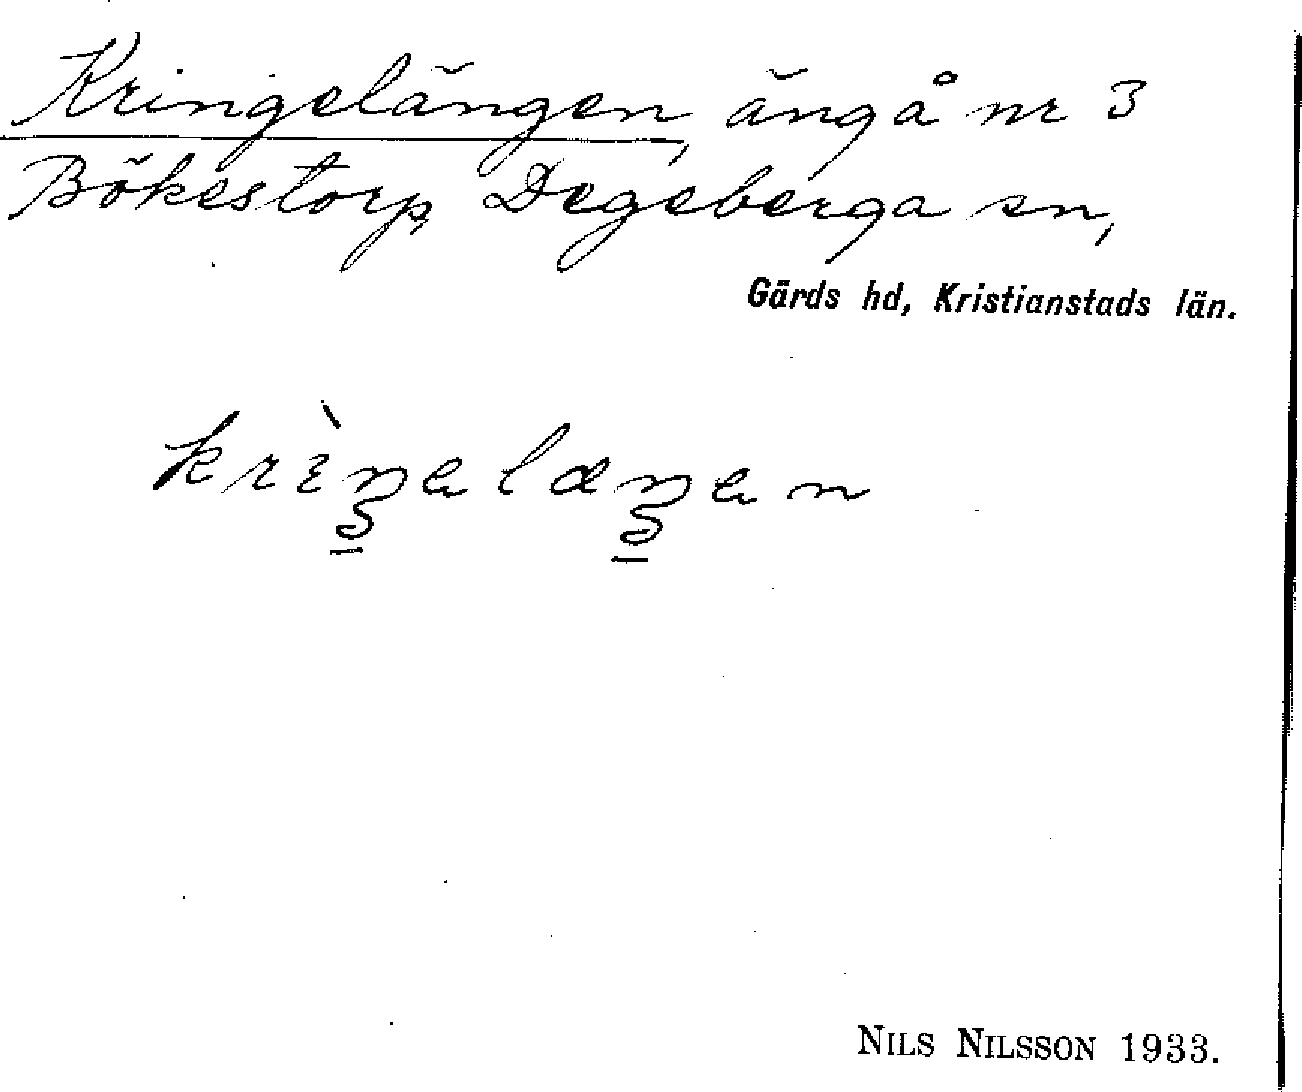 Kringelängen, äng å nr 3
Bökestorp, Degeberga sn,
Gärds hd, Kristianstads län.
krìŋəlæŋən
NILS NILSSON 1933.